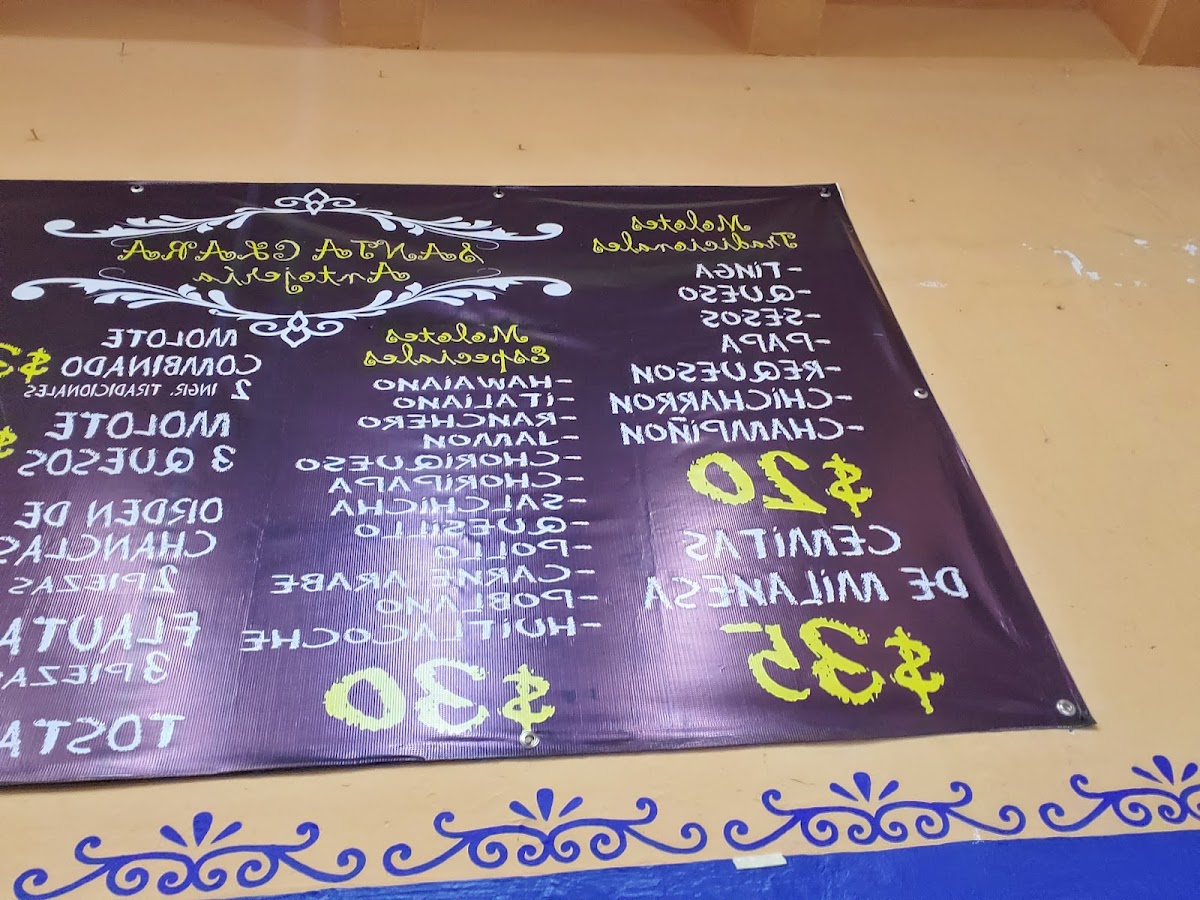 Molotes
Tradicionales
-TINGA
-QUESO
-SESOS
-PAPA
-REQUESON
-CHICHARRON
-CHAMPIÑON
$20
CEMITAS
DE MILANESA
$35
SANTA CLARA
Antojería
Molotes
Especiales
-HAWAIANO
-ITALIANO
-RANCHERO
-JAMON
-CHORIQUESO
-CHORIPAPA
-SALCHICHA
-QUESILLO
-POLLO
-CARNE ARABE
-POBLANO
-HUITLACOCHE
$30
MOLOTE
COMBINADO $3
2 INGR. TRADICIONALES
MOLOTE
3 QUESOS $
ORDEN DE
CHANCLAS
2 PIEZAS
FLAUTA
3 PIEZAS
TOSTA